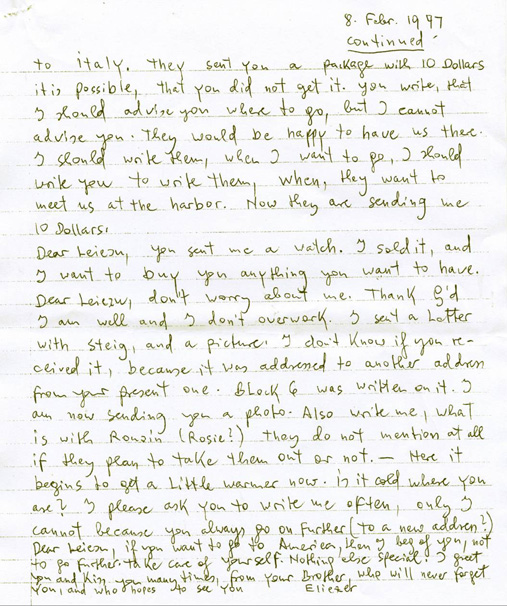 8. Febr. 1947
continued
to italy. They sent you a package with 10 Dollars
it is possible, that you did not get it. you write, that
I should advise you where to go, but I cannot
advise you. They would be happy to have us there.
I should write them, when I want to go, I should
write you to write them, when, they want to
meet us at the harbor. Now they are sending me
10 Dollars.
Dear Leizon, you sent me a watch. I sold it, and
I want to buy you anything you want to have.
Dear Leizon, don't worry about me. Thank G'd
I am well and I don't overwork. I sent a Letter
with Steig, and a picture. I don't know if you re-
ceived it, because it was addressed to another address
from your present one. Block 6 was written on it. I
am now sending you a photo. Also write me, what
is with (Rosie?) they do not mention at all
if they plan to take them out or not. — Here it
begins to get a Little warmer now. is it cold where you
are? I please ask you to write me often, only I
cannot because you always go on further (to a new address?)
Dear Leizon, if you want to go to America, then I beg of you, not
to go further. take care of yourself. Nothing else special. I greet
you and kiss you many times, from your Brother, who will never forget
you, and who hopes to see you Eliezer